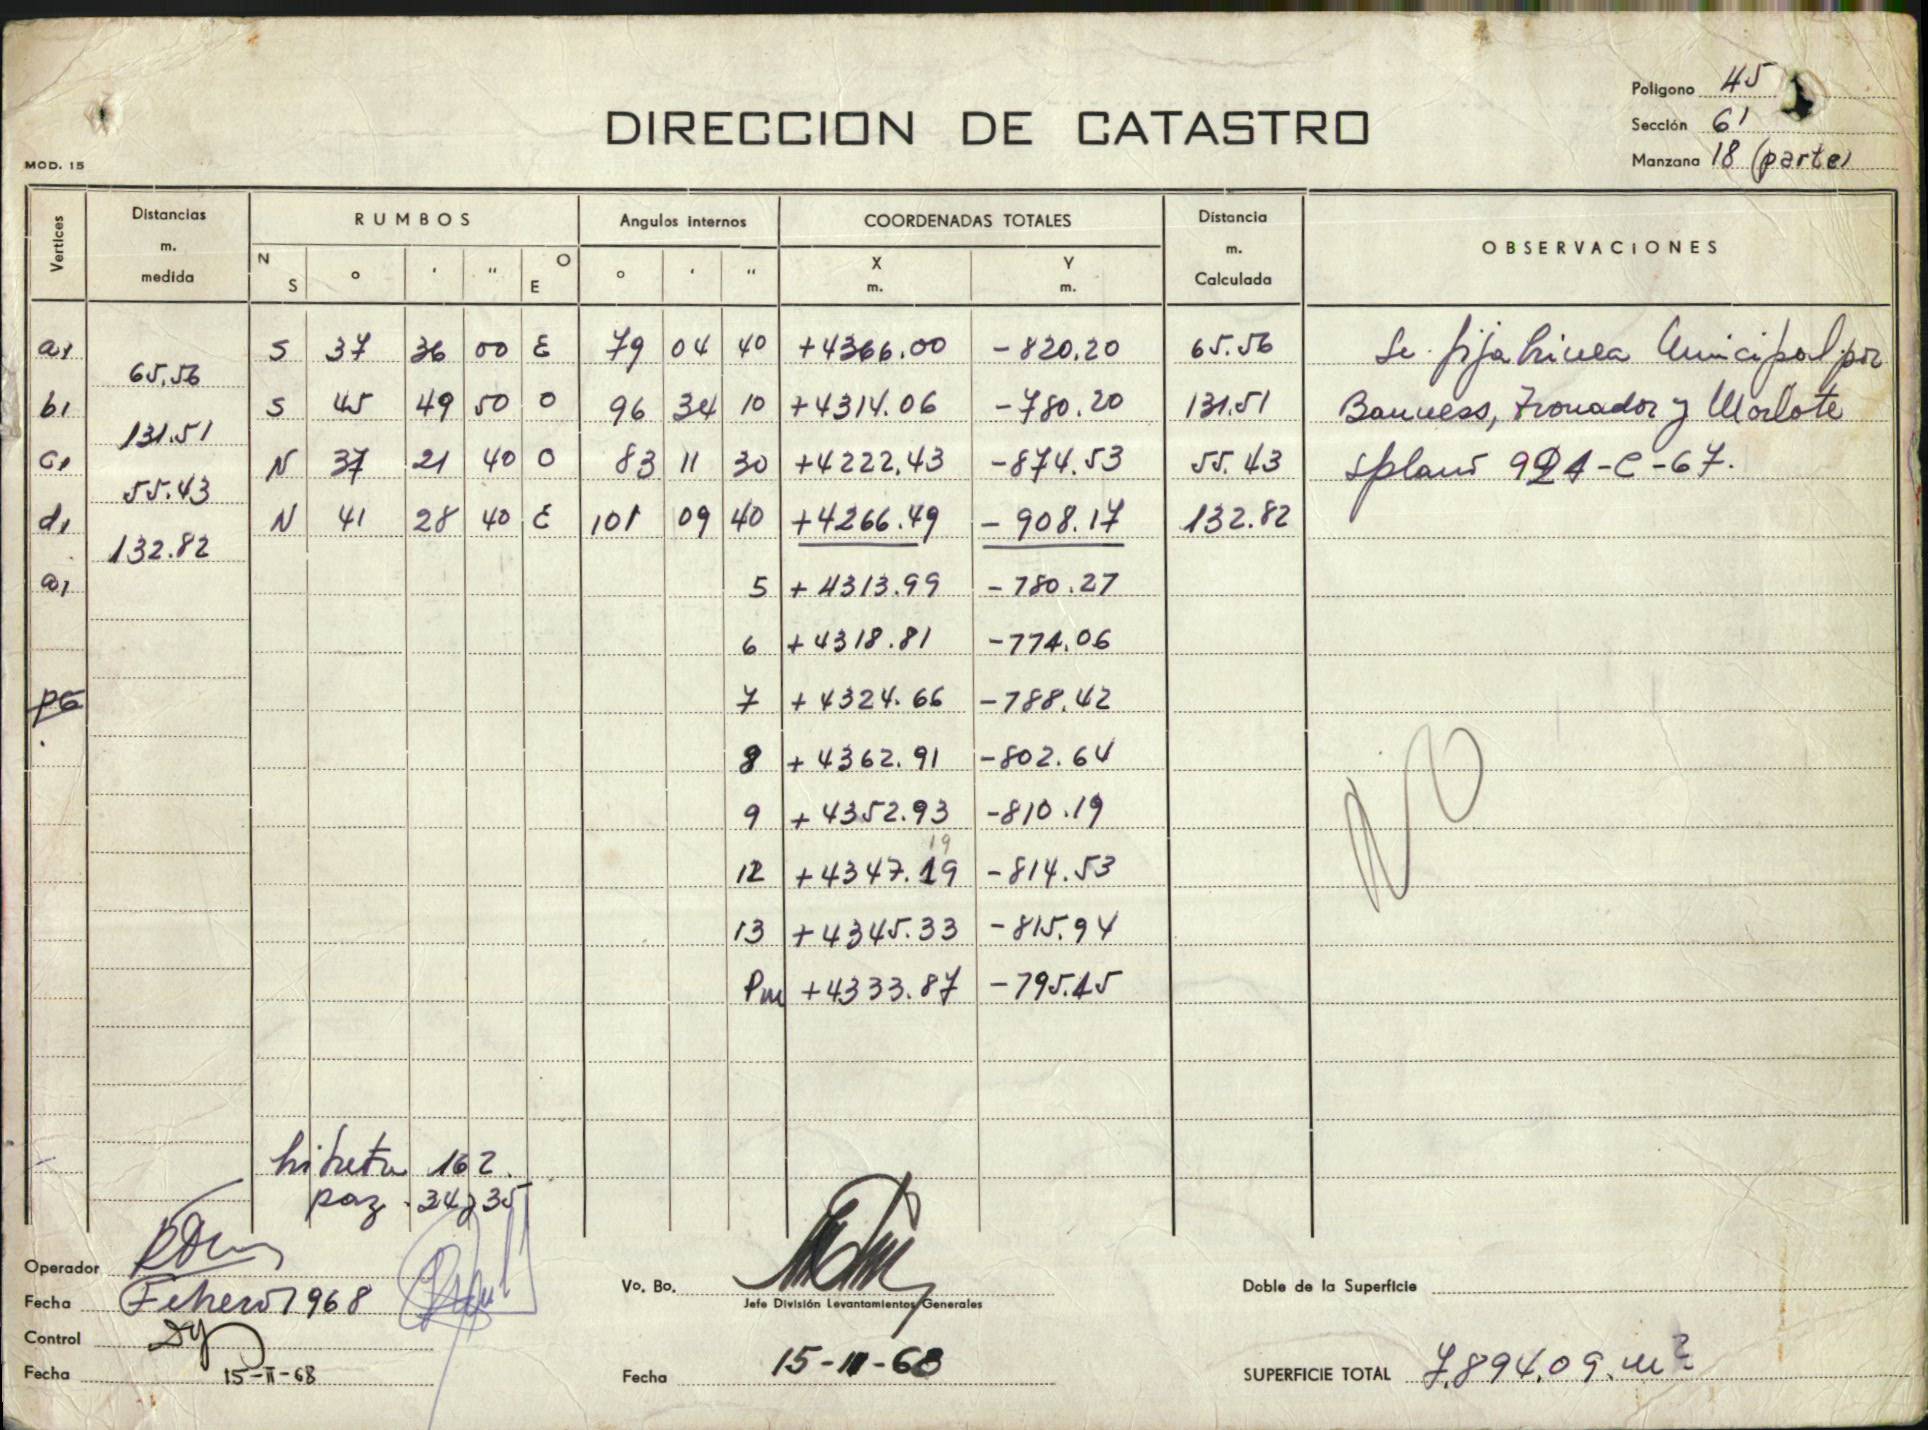 Poligono 45
DIRECCION DE CATASTRO
Sección 61
MOD. 15
Manzana 18 (parte)
Vertices Distancias m. medida RUMBOS Angulos internos COORDENADAS TOTALES Distancia m. Calculada OBSERVACIONES
N S ° ' " O E ° ' " X m. Y m.
a1 S 37 36 00 E 79 04 40 +4366.00 -820.20 65.56 Se fija Linea Municipal por
65.56
b1 S 45 49 50 O 96 34 10 +4314.06 -780.20 131.51 Banness, Tronador y Mariote
131.51
c1 N 37 21 40 O 83 11 30 +4222.43 -874.53 55.43 splano 921-C-67.
55.43
d1 N 41 28 40 E 101 09 40 +4266.49 -908.17 132.82
132.82
a1 5 +4313.99 -780.27
6 +4318.81 -774.06
PG 7 +4324.66 -788.42
8 +4362.91 -802.64
9 +4352.93 -810.19
19
12 +4347.19 -814.53
13 +4345.33 -815.94
Pm +4333.87 -795.15
Libreta 162.
pag. 34y35
Operador
Fecha Febrero 1968
Vo. Bo.
Jefe División Levantamientos Generales
Doble de la Superficie
Control
Fecha 15-II-68
Fecha 15-II-68
SUPERFICIE TOTAL 7.894.09.m2